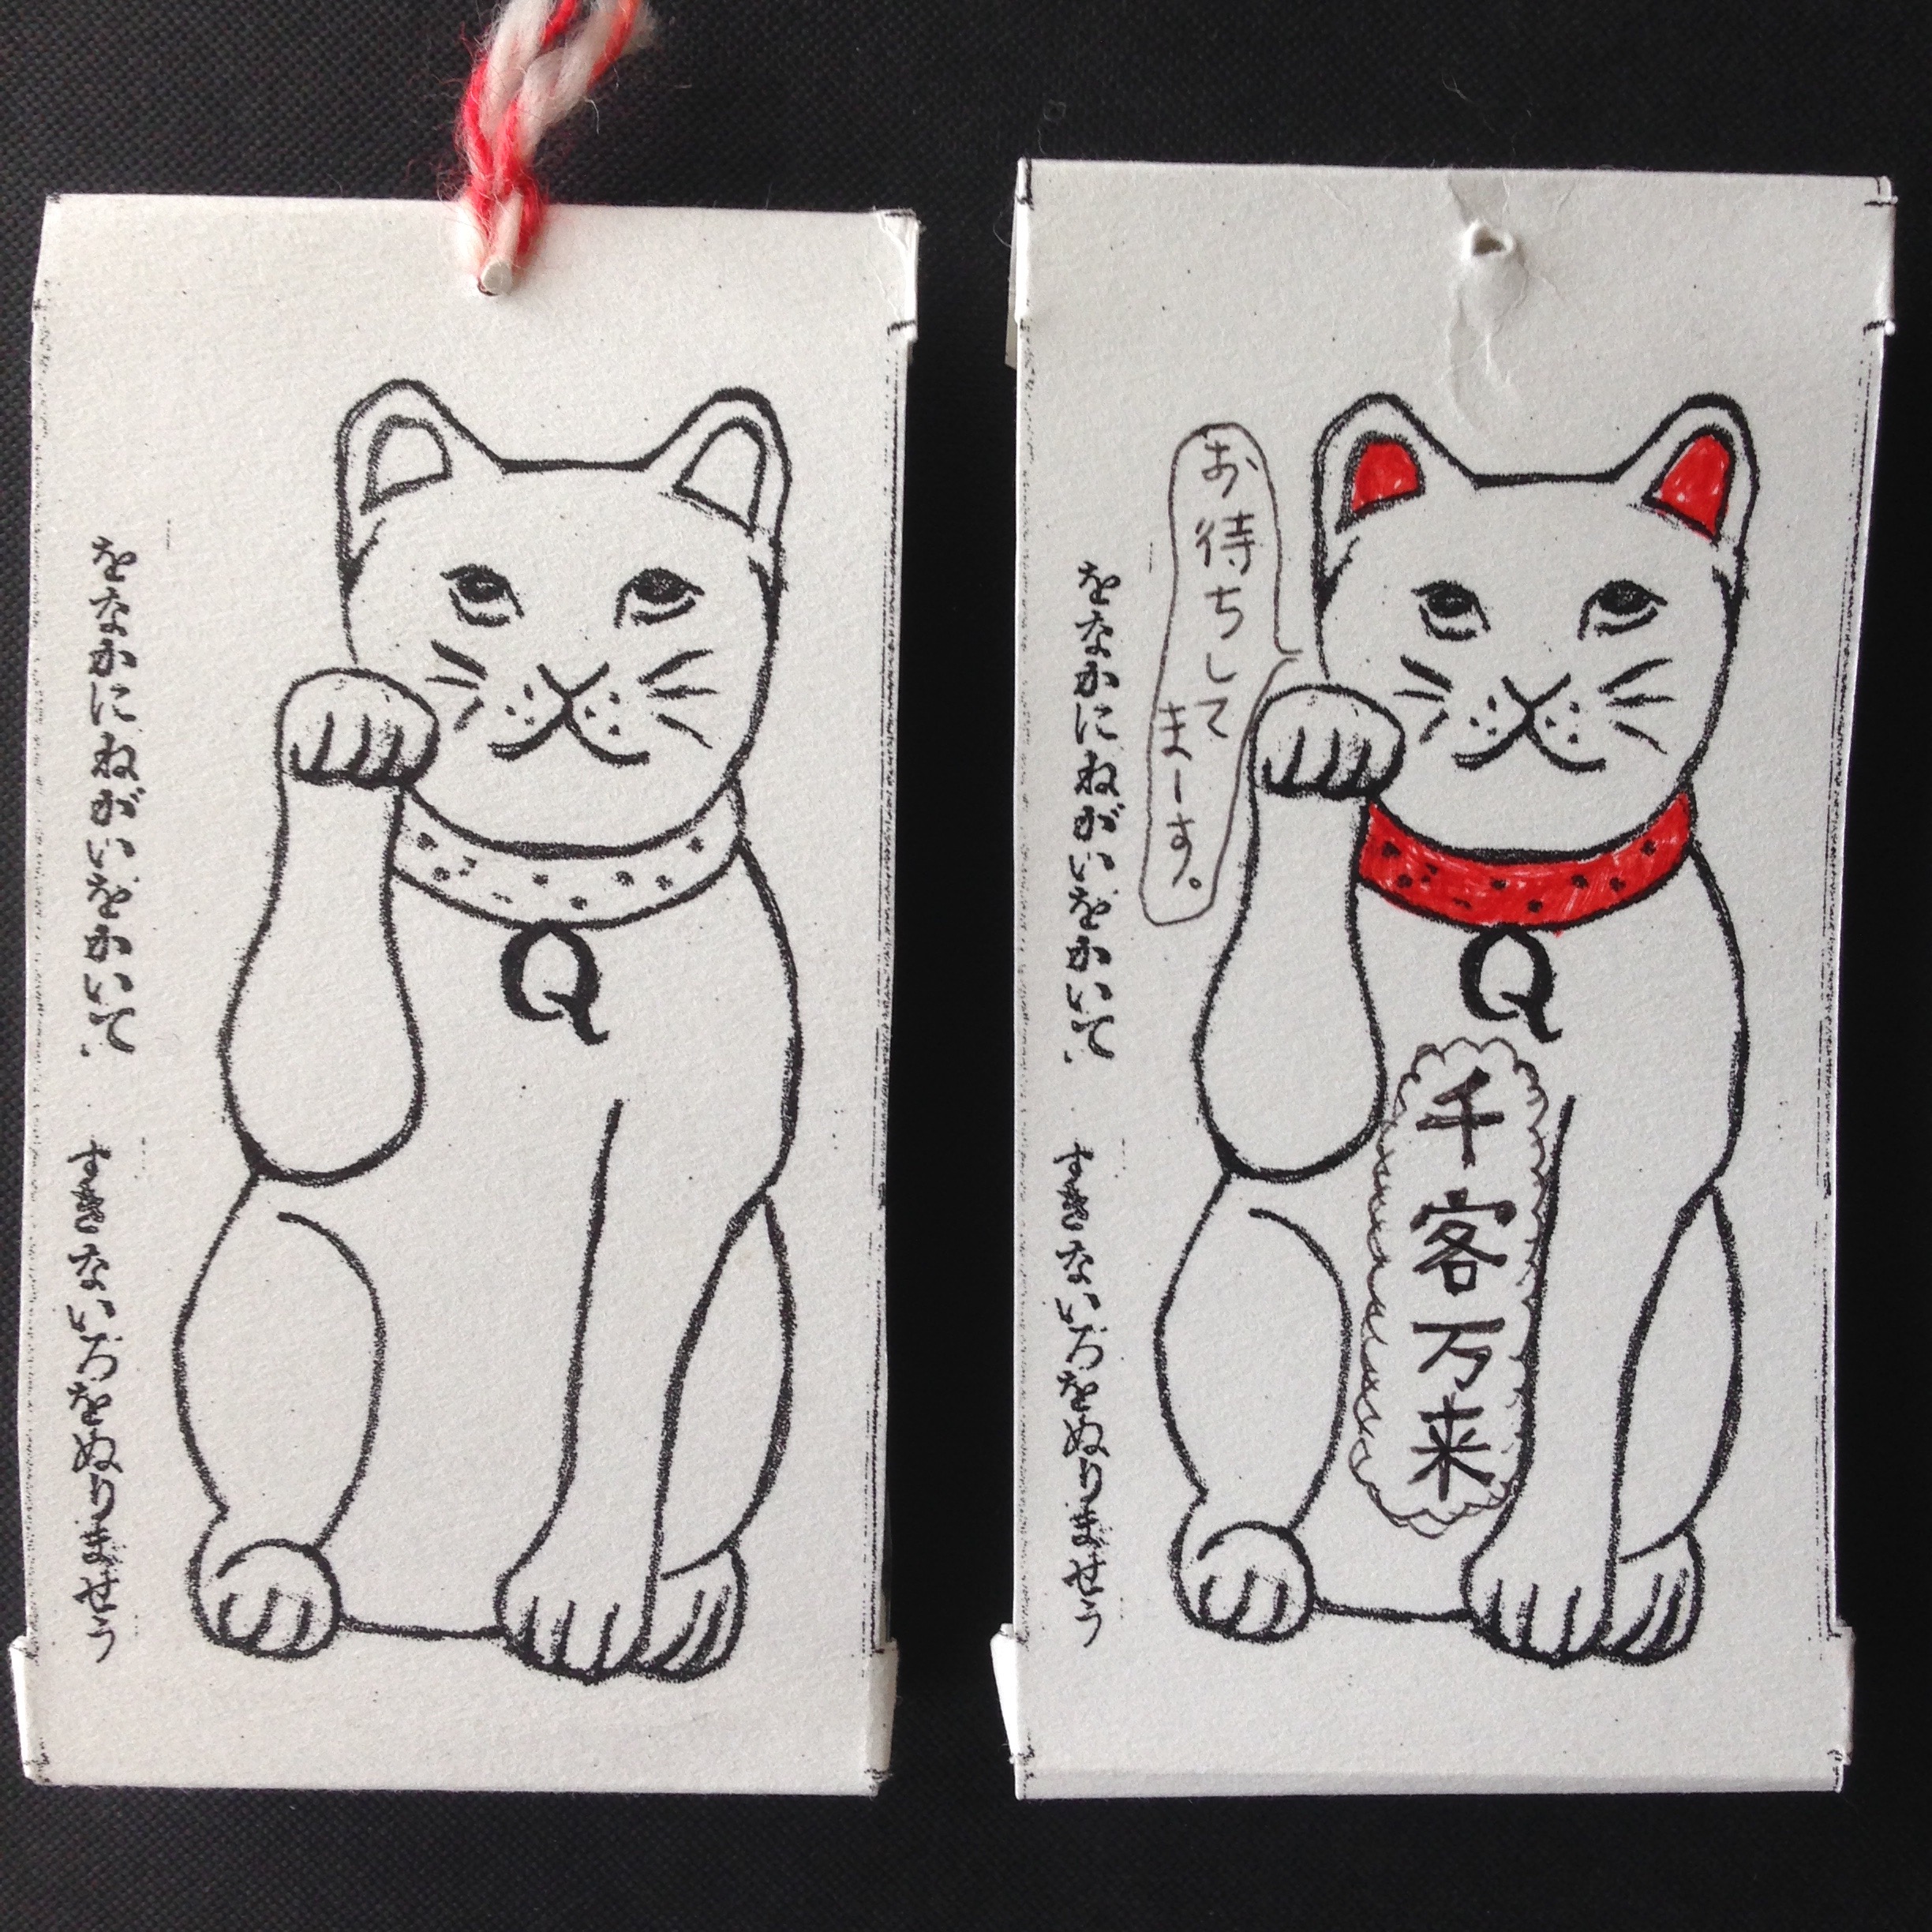 をなかにねがいをかいて、
すきないろをぬりませう
Q
をなかにねがいをかいて、
すきないろをぬりませう
お待ちして
まーす。
Q
千客万来